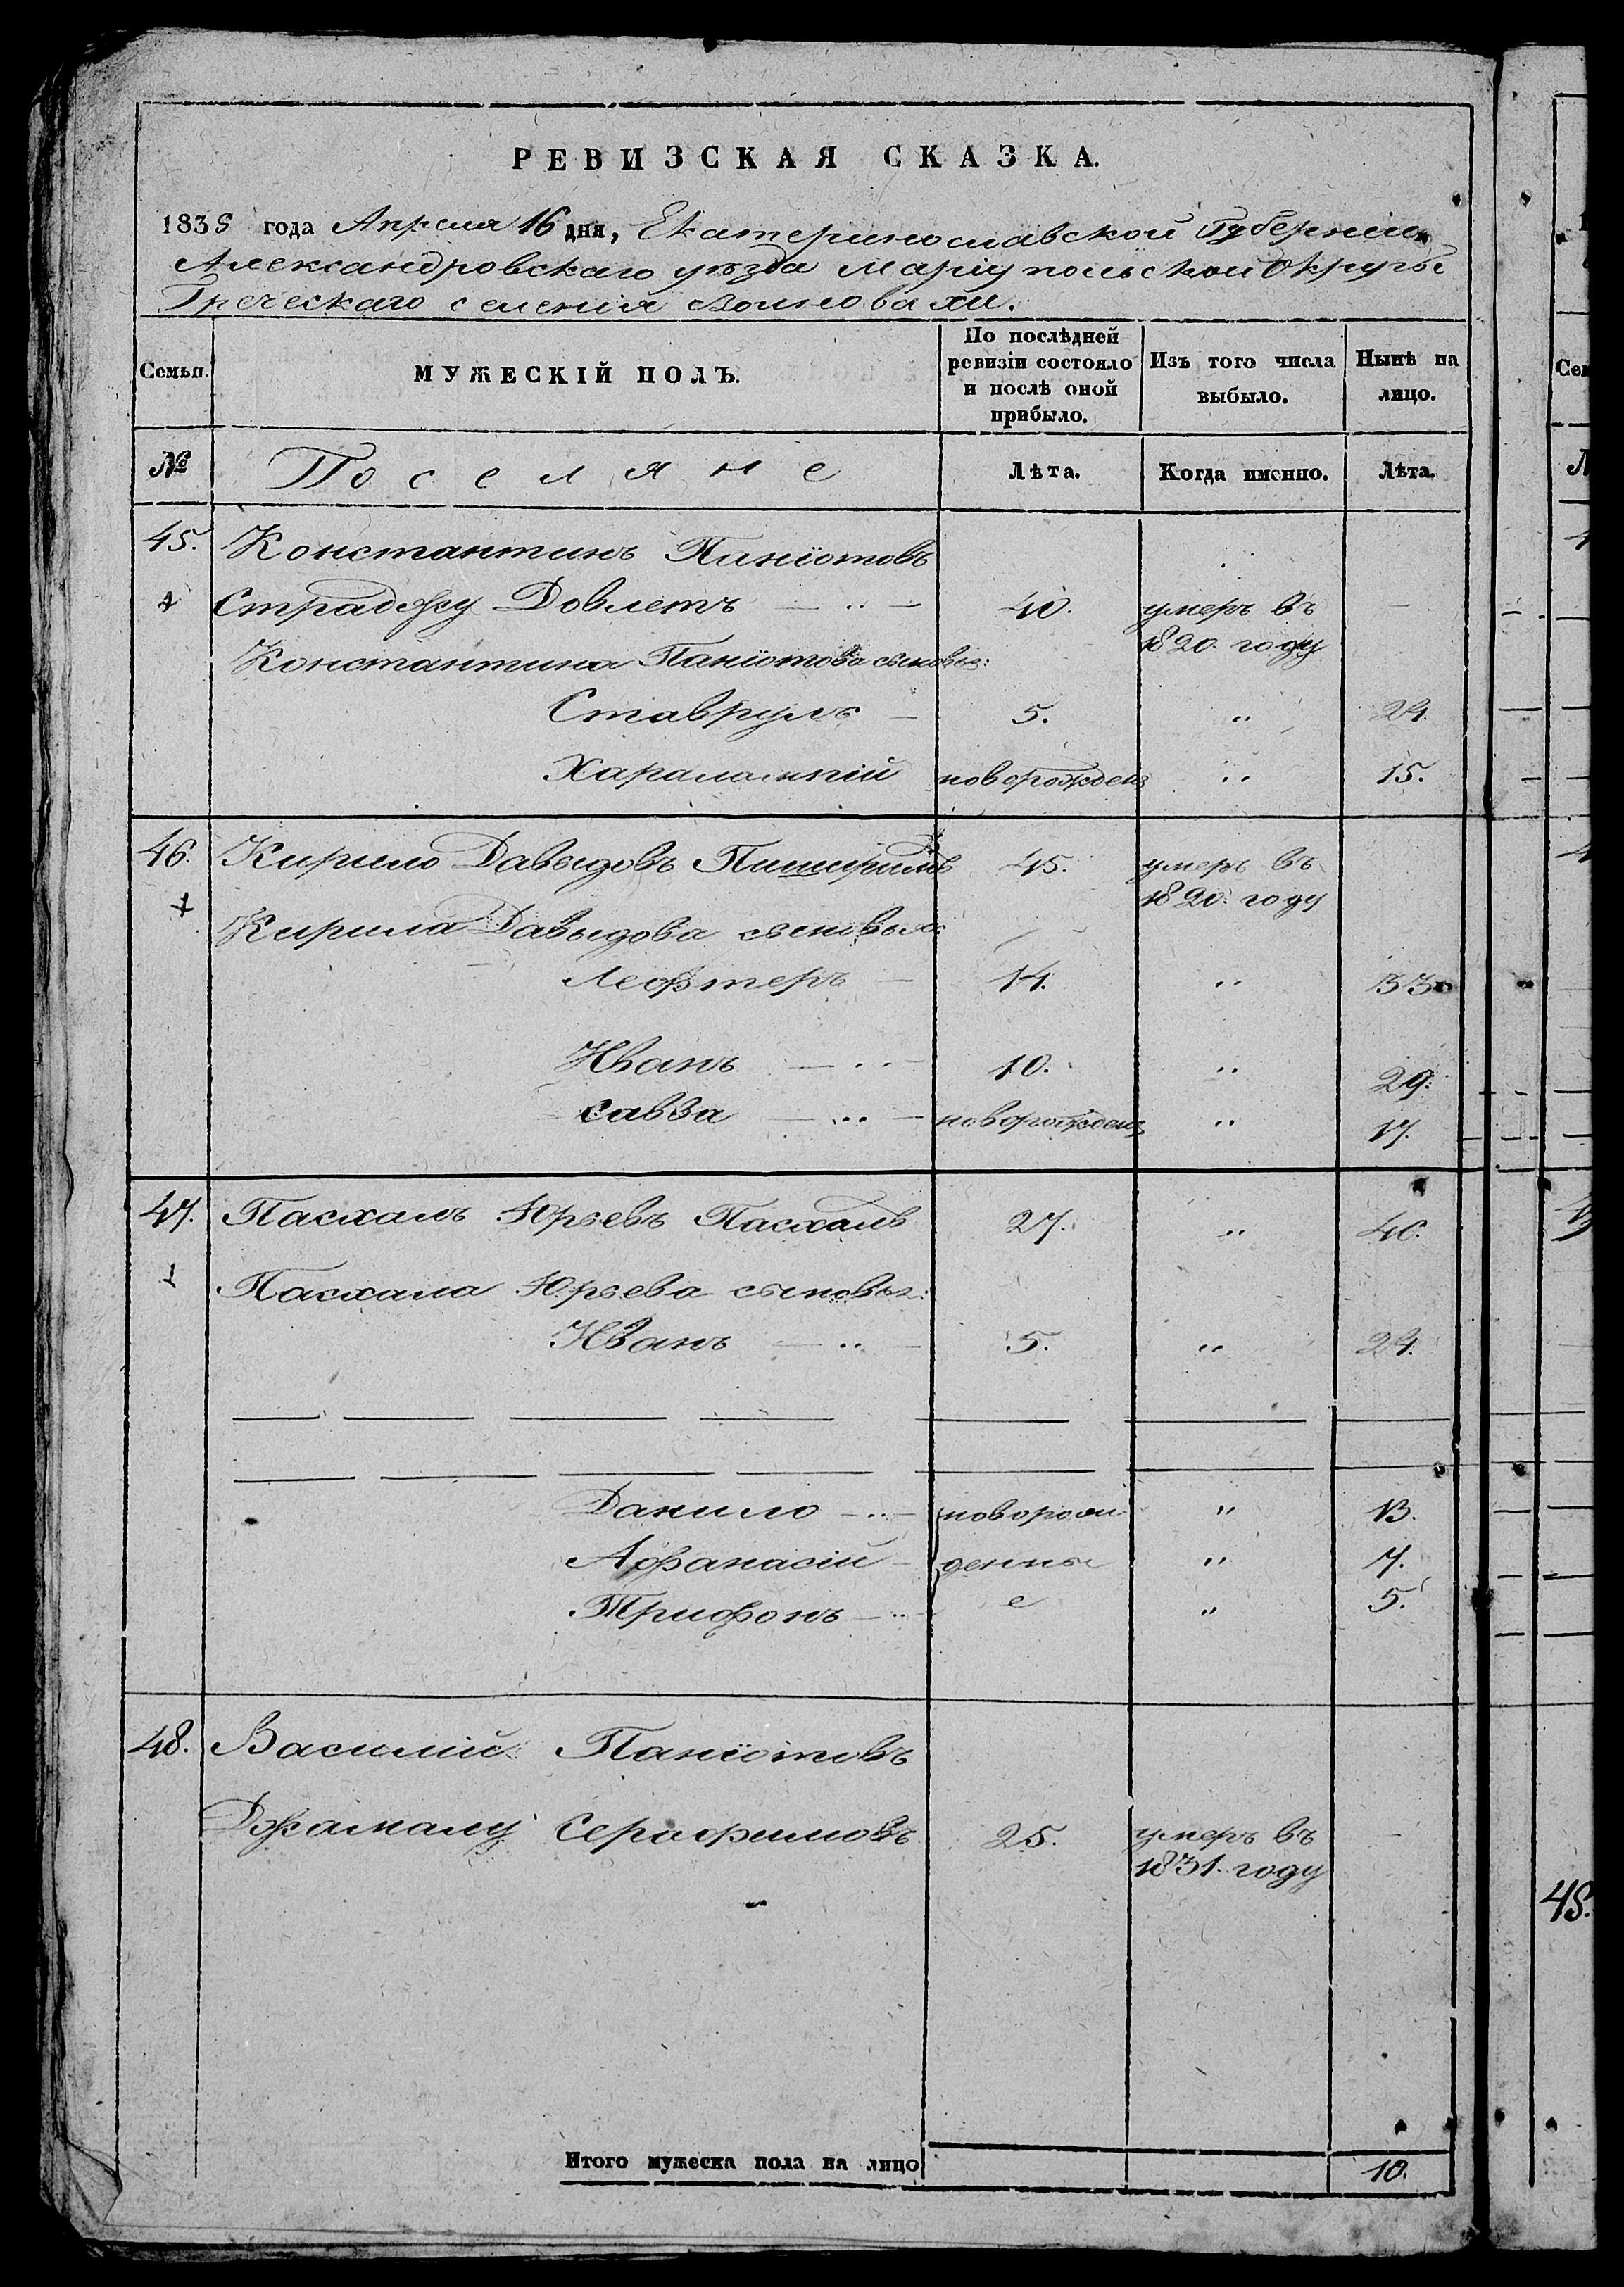 РЕВИЗСКАЯ СКАЗКА.
1835 года Апреля 16 дня, Екатеринославской Губерніи
Александровскаго уѣзда Маріупольской Округи
Греческаго селенія
Семьи.
МУЖЕСКІЙ ПОЛЪ.
По послѣдней ревизіи состояло и послѣ оной прибыло.
Изъ того числа выбыло.
Нынѣ на лицо.
№ Поселяне Лѣта. Когда именно. Лѣта.
45. Константинъ Панїотовъ
Довлетъ 40. умеръ въ 1820. году
Константина Панїотова сыновья:
Ставрулъ 5. " 24.
Харалампій новорожден " 15.
46. Кирило Давыдовъ 45. умеръ въ 1820. году
Кирила Давыдова сыновья:
Леофтеръ 14. " 33.
Иванъ 10. " 29.
Савва новорожден " 17.
47. Пасхалъ Юрьевъ Пасхалъ 27. " 46.
Пасхала Юрьева сыновья:
Иванъ 5. " 24.
Данило новорож " 13.
Афанасій денны " 7.
Трифонъ е " 5.
48. Василій Панїотовъ
Джамалу Серафимовъ 25. умеръ въ 1831. году
Итого мужеска пола на лицо 10.
48.